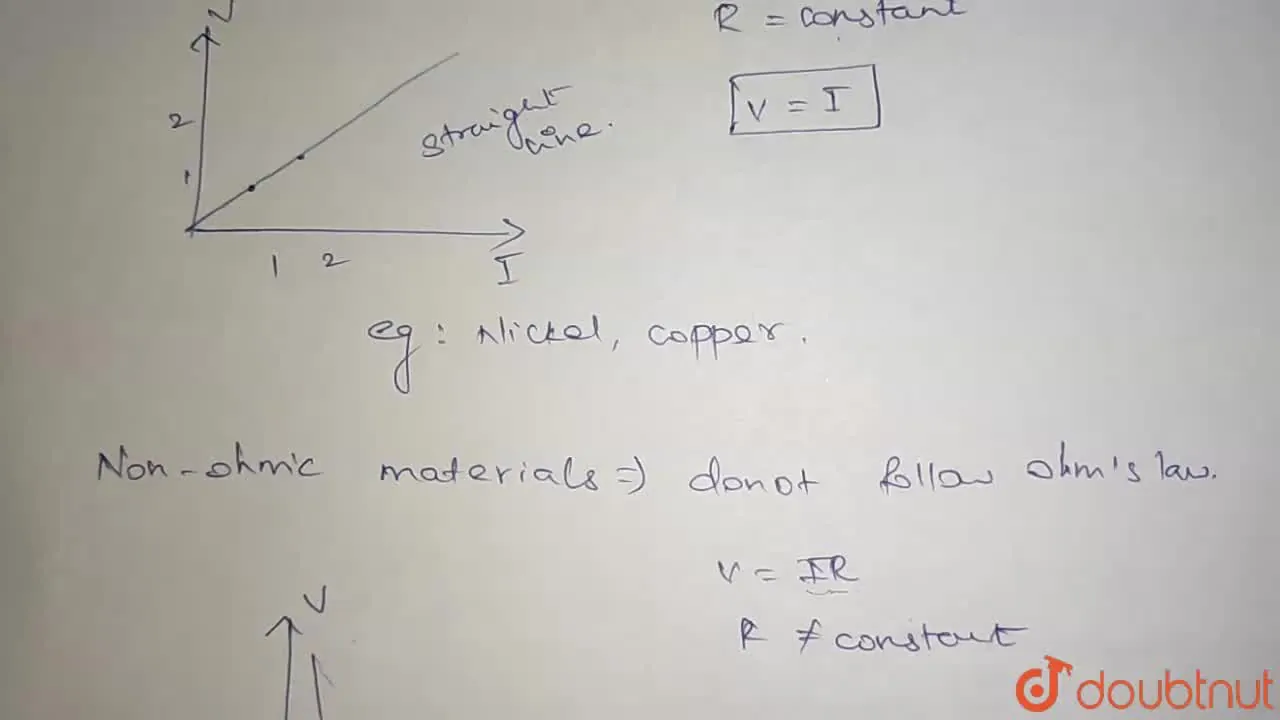 V
R = constant
2
straight
line.
V = I
1
1 2
I
eg : Nickel, copper.
Non-ohmic materials => donot follow ohm's law.
V = IR
V
R ≠ constant
doubtnut